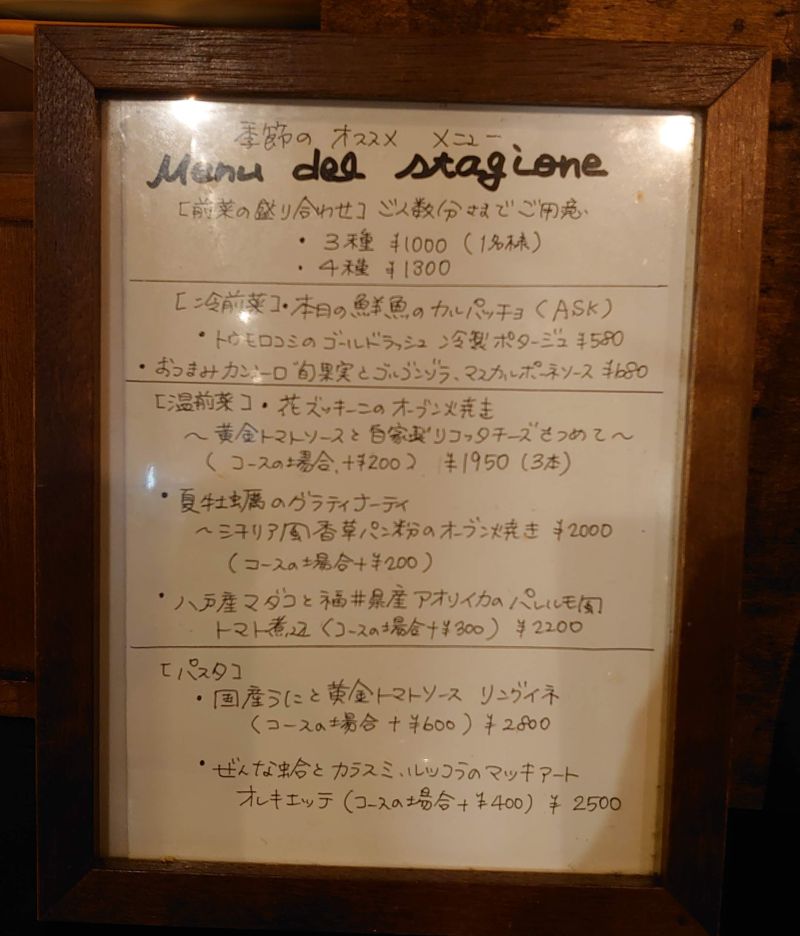 季節の オススメ メニュー
Menu del stagione
[前菜の盛り合わせ] ご人数分までご用意
・3種 ¥1000 (1名様)
・4種 ¥1300
[冷前菜]・本日の鮮魚のカルパッチョ (ASK)
・トウモロコシのゴールドラッシュ 冷製ポタージュ ¥580
・おつまみカンノーロ 旬果実とゴルゴンゾラ、マスカルポーネソース ¥680
[温前菜]・花ズッキーニのオーブン焼き
〜黄金トマトソースと自家製リコッタチーズをつめて〜
(コースの場合、+¥200) ¥1950 (3本)
・夏牡蠣のグラティナーティ
〜シチリア風香草パン粉のオーブン焼き ¥2000
(コースの場合+¥200)
・八戸産マダコと福井県産アオリイカのパレルモ風
トマト煮込 (コースの場合+¥300) ¥2200
[パスタ]
・国産うにと黄金トマトソース リングイネ
(コースの場合 +¥600) ¥2800
・ぜんな蛤とカラスミ、ルッコラのマッキアート
オレキエッテ (コースの場合+¥400) ¥2500